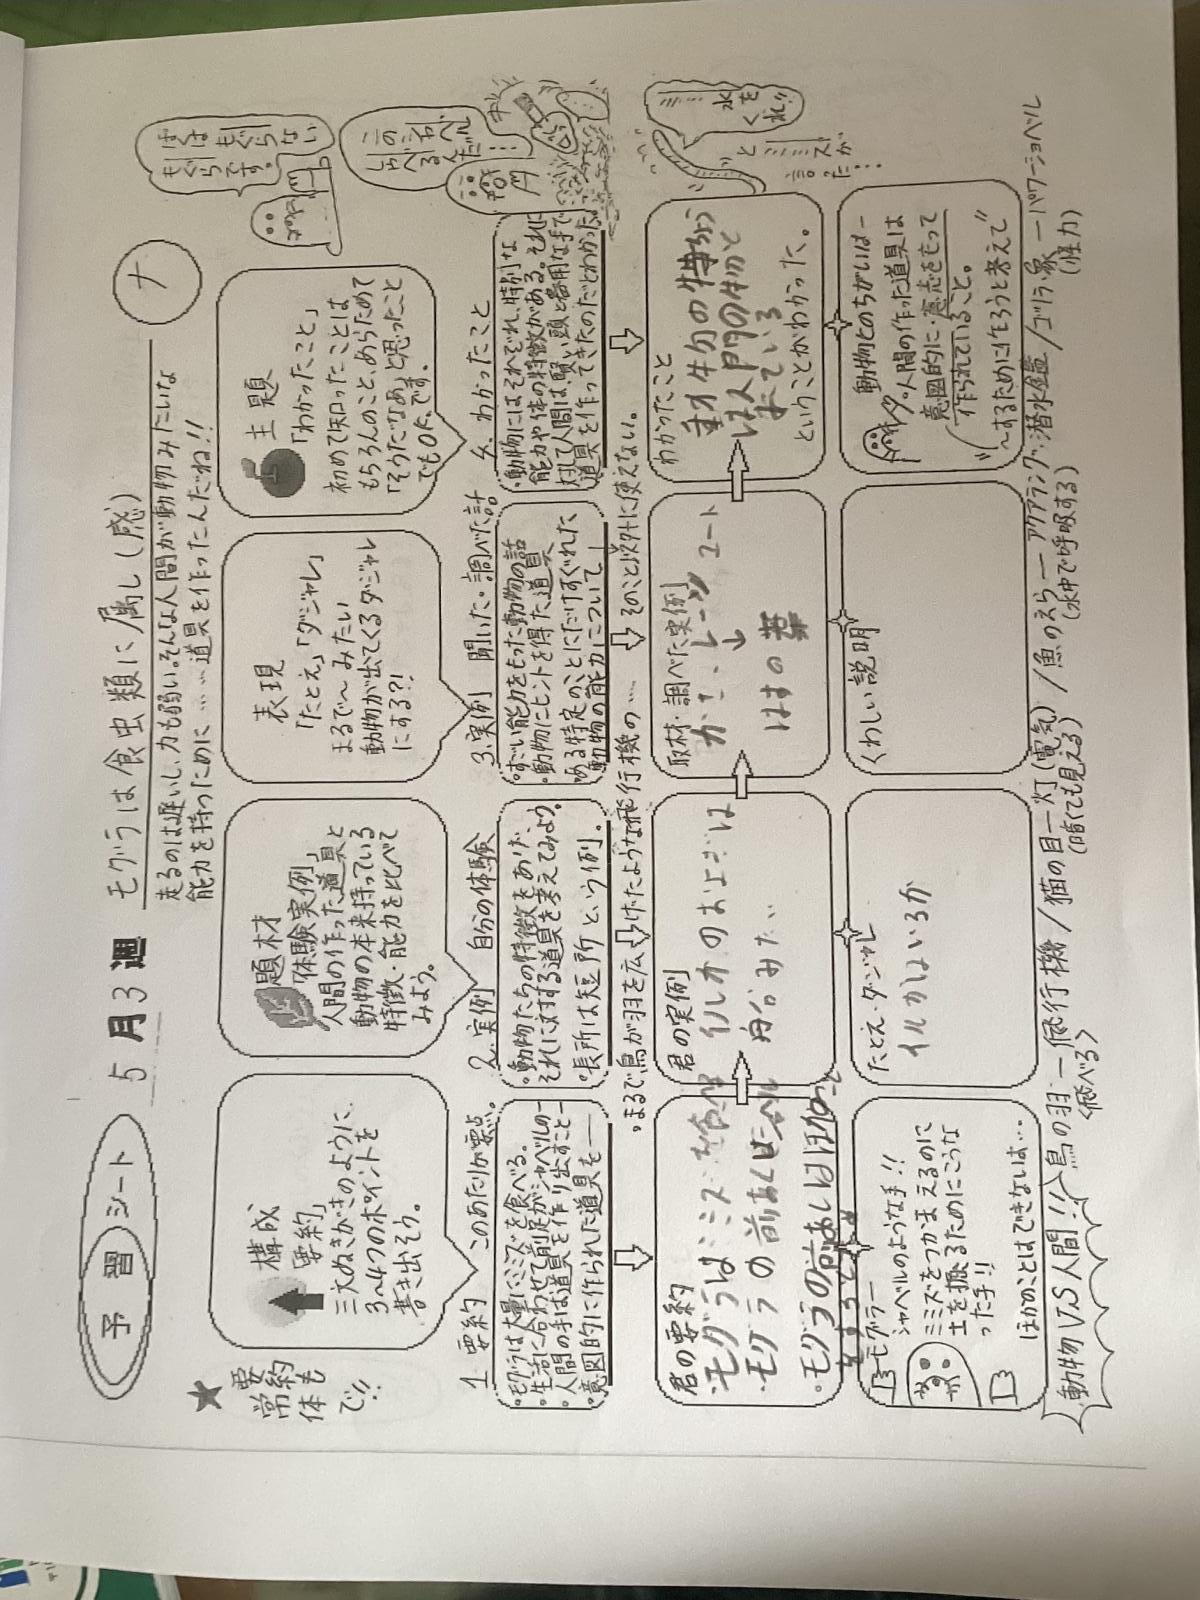 予習シート
5月3週
モグラは食虫類に属し(感)
ナ
走るのは遅いし、力も弱い。そんな人間が動物みたいな
能力を持つために……道具を作ったんだね!!
ぼくは
もぐらない
もぐらです。
★要約も
常体
で!!
構成
「要約」
三大ぬきがきのように、
3〜4つのポイントを
書き出そう。
題材
「体験実例」
人間の作った道具と
動物の本来持っている
特徴・能力を比べて
みよう。
表現
「たとえ」「ダジャレ」
まるで〜みたい
動物が出てくるダジャレ
にする?!
主題
「わかったこと」
初めて知ったことは
もちろんのこと、あらためて
「そうだなあ」と思ったこと
でもOKです。
1 要約 このあたりが要点。
・モグラは大量にミミズを食べる。
・生活に合わせて前足がシャベルの—
・人間の手は道具を作り出すこと—
・意図的に作られた道具を—
2.実例 自分の体験
・動物たちの特徴をあげ、
それに対する道具を考えてみよう。
・長所は短所という例。
3.実例 聞いた・調べた話
・すごい能力をもった動物の話
・動物にヒントを得た道具
・ある特定のことにだけすぐれた
動物の能力について—
4. わかったこと
・動物にはそれぞれ、特別な
能力や体の特徴がある。それに
対して人間は、賢い頭と器用な手で
道具を作ってきたのだとわかった。
・まるで鳥が羽を広げたような飛行機の…… そのこと以外に使えない。
君の要約
・モグラはミミズを
・モグラの前あしは
・モグラの前あしはほること
君の実例
イルカのおよぎは
取材・調べた実例
はすの葉
わかったこと
ということがわかった。
水を
くれ!!
とミミズが
言った…
モグラー
シャベルのような手!!
ミミズをつかまえるのに
土を掘るためにこうな
った手!!
ほかのことはできないは…
たとえ・ダジャレ
イルカはいるか
くわしい説明
動物とのちがいはー
人間の作った道具は
意図的に・意志をもって
作られていること。
〜するために作ろうと考えて
動物VS人間!! 鳥の羽—飛行機/猫の目—灯(電気)/魚のえら—アクアラング・潜水艦/ゴリラ・象—パワーショベル
<飛べる> (暗くても見える) (水中で呼吸する) (怪力)